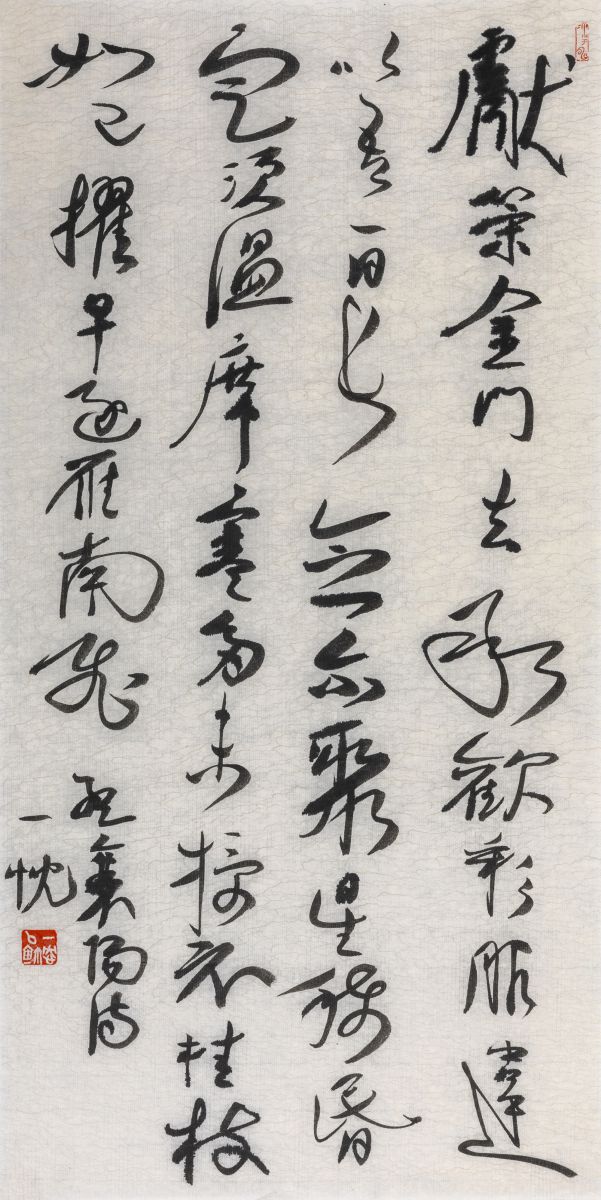 獻策金門去承歡彩服違
以吾一日長念尔聚星稀昏
定須溫席寒多未授衣桂枝
如已擢早逐雁南飛 孟襄陽詩
一忱